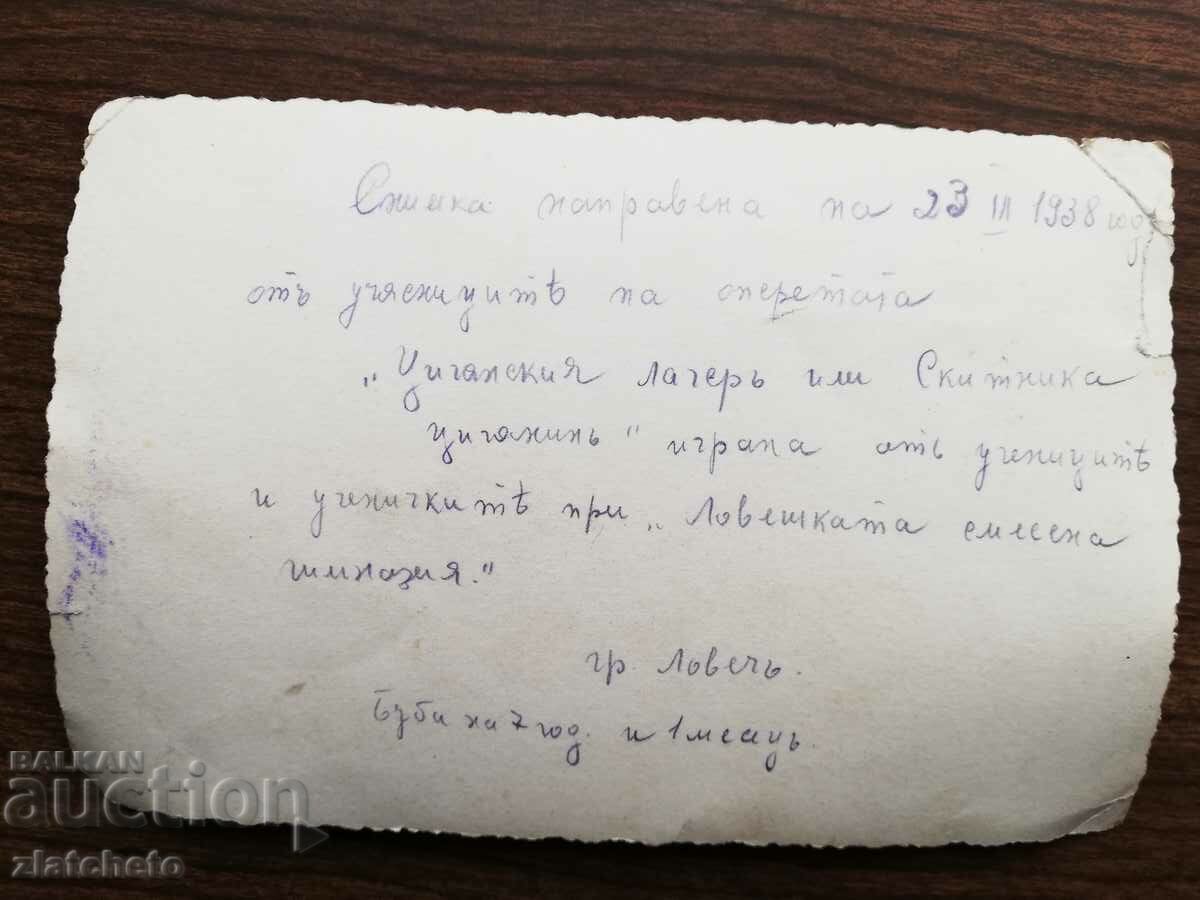 Снимка направена на 23 III 1938 год
отъ учясницитѣ на оперетата
„Циганския лагеръ или Скитника
циганинъ" играна отъ ученицитѣ
и ученичкитѣ при „Ловешката смесена
гимназия."
гр. Ловечъ.
Буби на 7 год. и 1 месецъ.
BALKAN
auction
zlatcheto